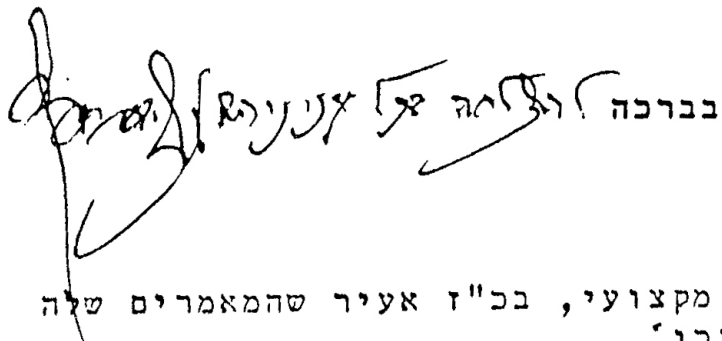 בברכה להצלחה בכל עניניהם
מקצועי, בכ"ז אעיר שהמאמרים שלה